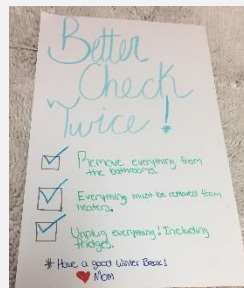 Better
Check
Twice!
Remove everything from
the bathrooms.
Everything must be removed from
heaters.
Unplug everything! Including
fridges.
* Have a good Winter Break!
Mom